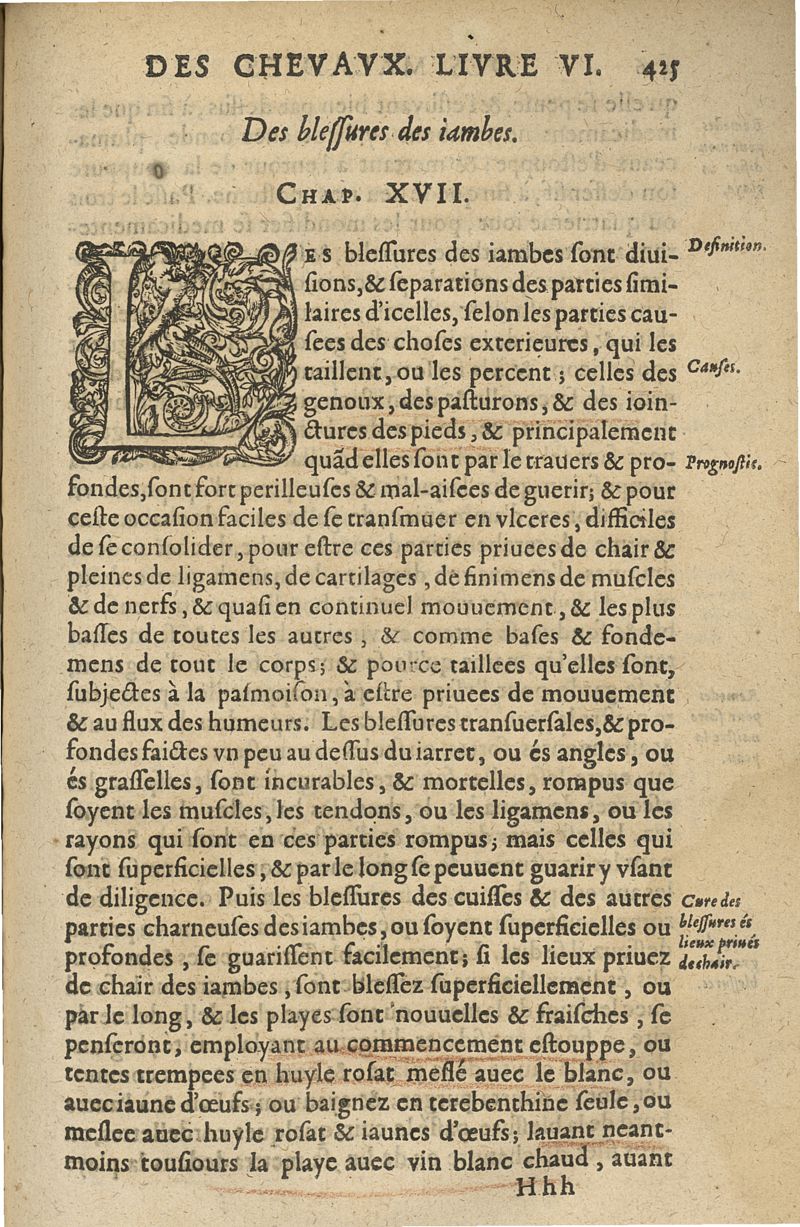 DES CHEVAVX. LIVRE VI. 425
Des blessures des iambes.
CHAP. XVII.
LES blessures des iambes sont diui-
Definition.
sions, & separations des parties simi-
laires d'icelles, selon les parties cau-
sees des choses exterieures, qui les
taillent, ou les percent; celles des
Causes.
genoux, des pasturons, & des ioin-
ctures des pieds, & principalement
quãd elles sont par le trauers & pro-
Prognostic.
fondes, sont fort perilleuses & mal-aisees de guerir; & pour
ceste occasion faciles de se transmuer en vlceres, difficiles
de se consolider, pour estre ces parties priuees de chair &
pleines de ligamens, de cartilages, de finimens de muscles
& de nerfs, & quasi en continuel mouuement, & les plus
basses de toutes les autres, & comme bases & fonde-
mens de tout le corps; & pource taillees qu'elles sont,
subjectes à la pasmoison, à estre priuees de mouuement
& au flux des humeurs. Les blessures transuersales, & pro-
fondes faictes vn peu au dessus du iarret, ou és angles, ou
és grasselles, sont incurables, & mortelles, rompus que
soyent les muscles, les tendons, ou les ligamens, ou les
rayons qui sont en ces parties rompus; mais celles qui
sont superficielles, & par le long se peuuent guarir y vsant
de diligence. Puis les blessures des cuisses & des autres
Cure des
parties charneuses des iambes, ou soyent superficielles ou
blessures és
profondes, se guarissent facilement; si les lieux priuez
lieux priués
de chair.
de chair des iambes, sont blessez superficiellement, ou
par le long, & les playes sont nouuelles & fraisches, se
penseront, employant au commencement estouppe, ou
tentes trempees en huyle rosat meslé auec le blanc, ou
auec iaune d'œufs; ou baignez en terebenthine seule, ou
meslee auec huyle rosat & iaunes d'œufs; lauant neant-
moins tousiours la playe auec vin blanc chaud, auant
Hhh